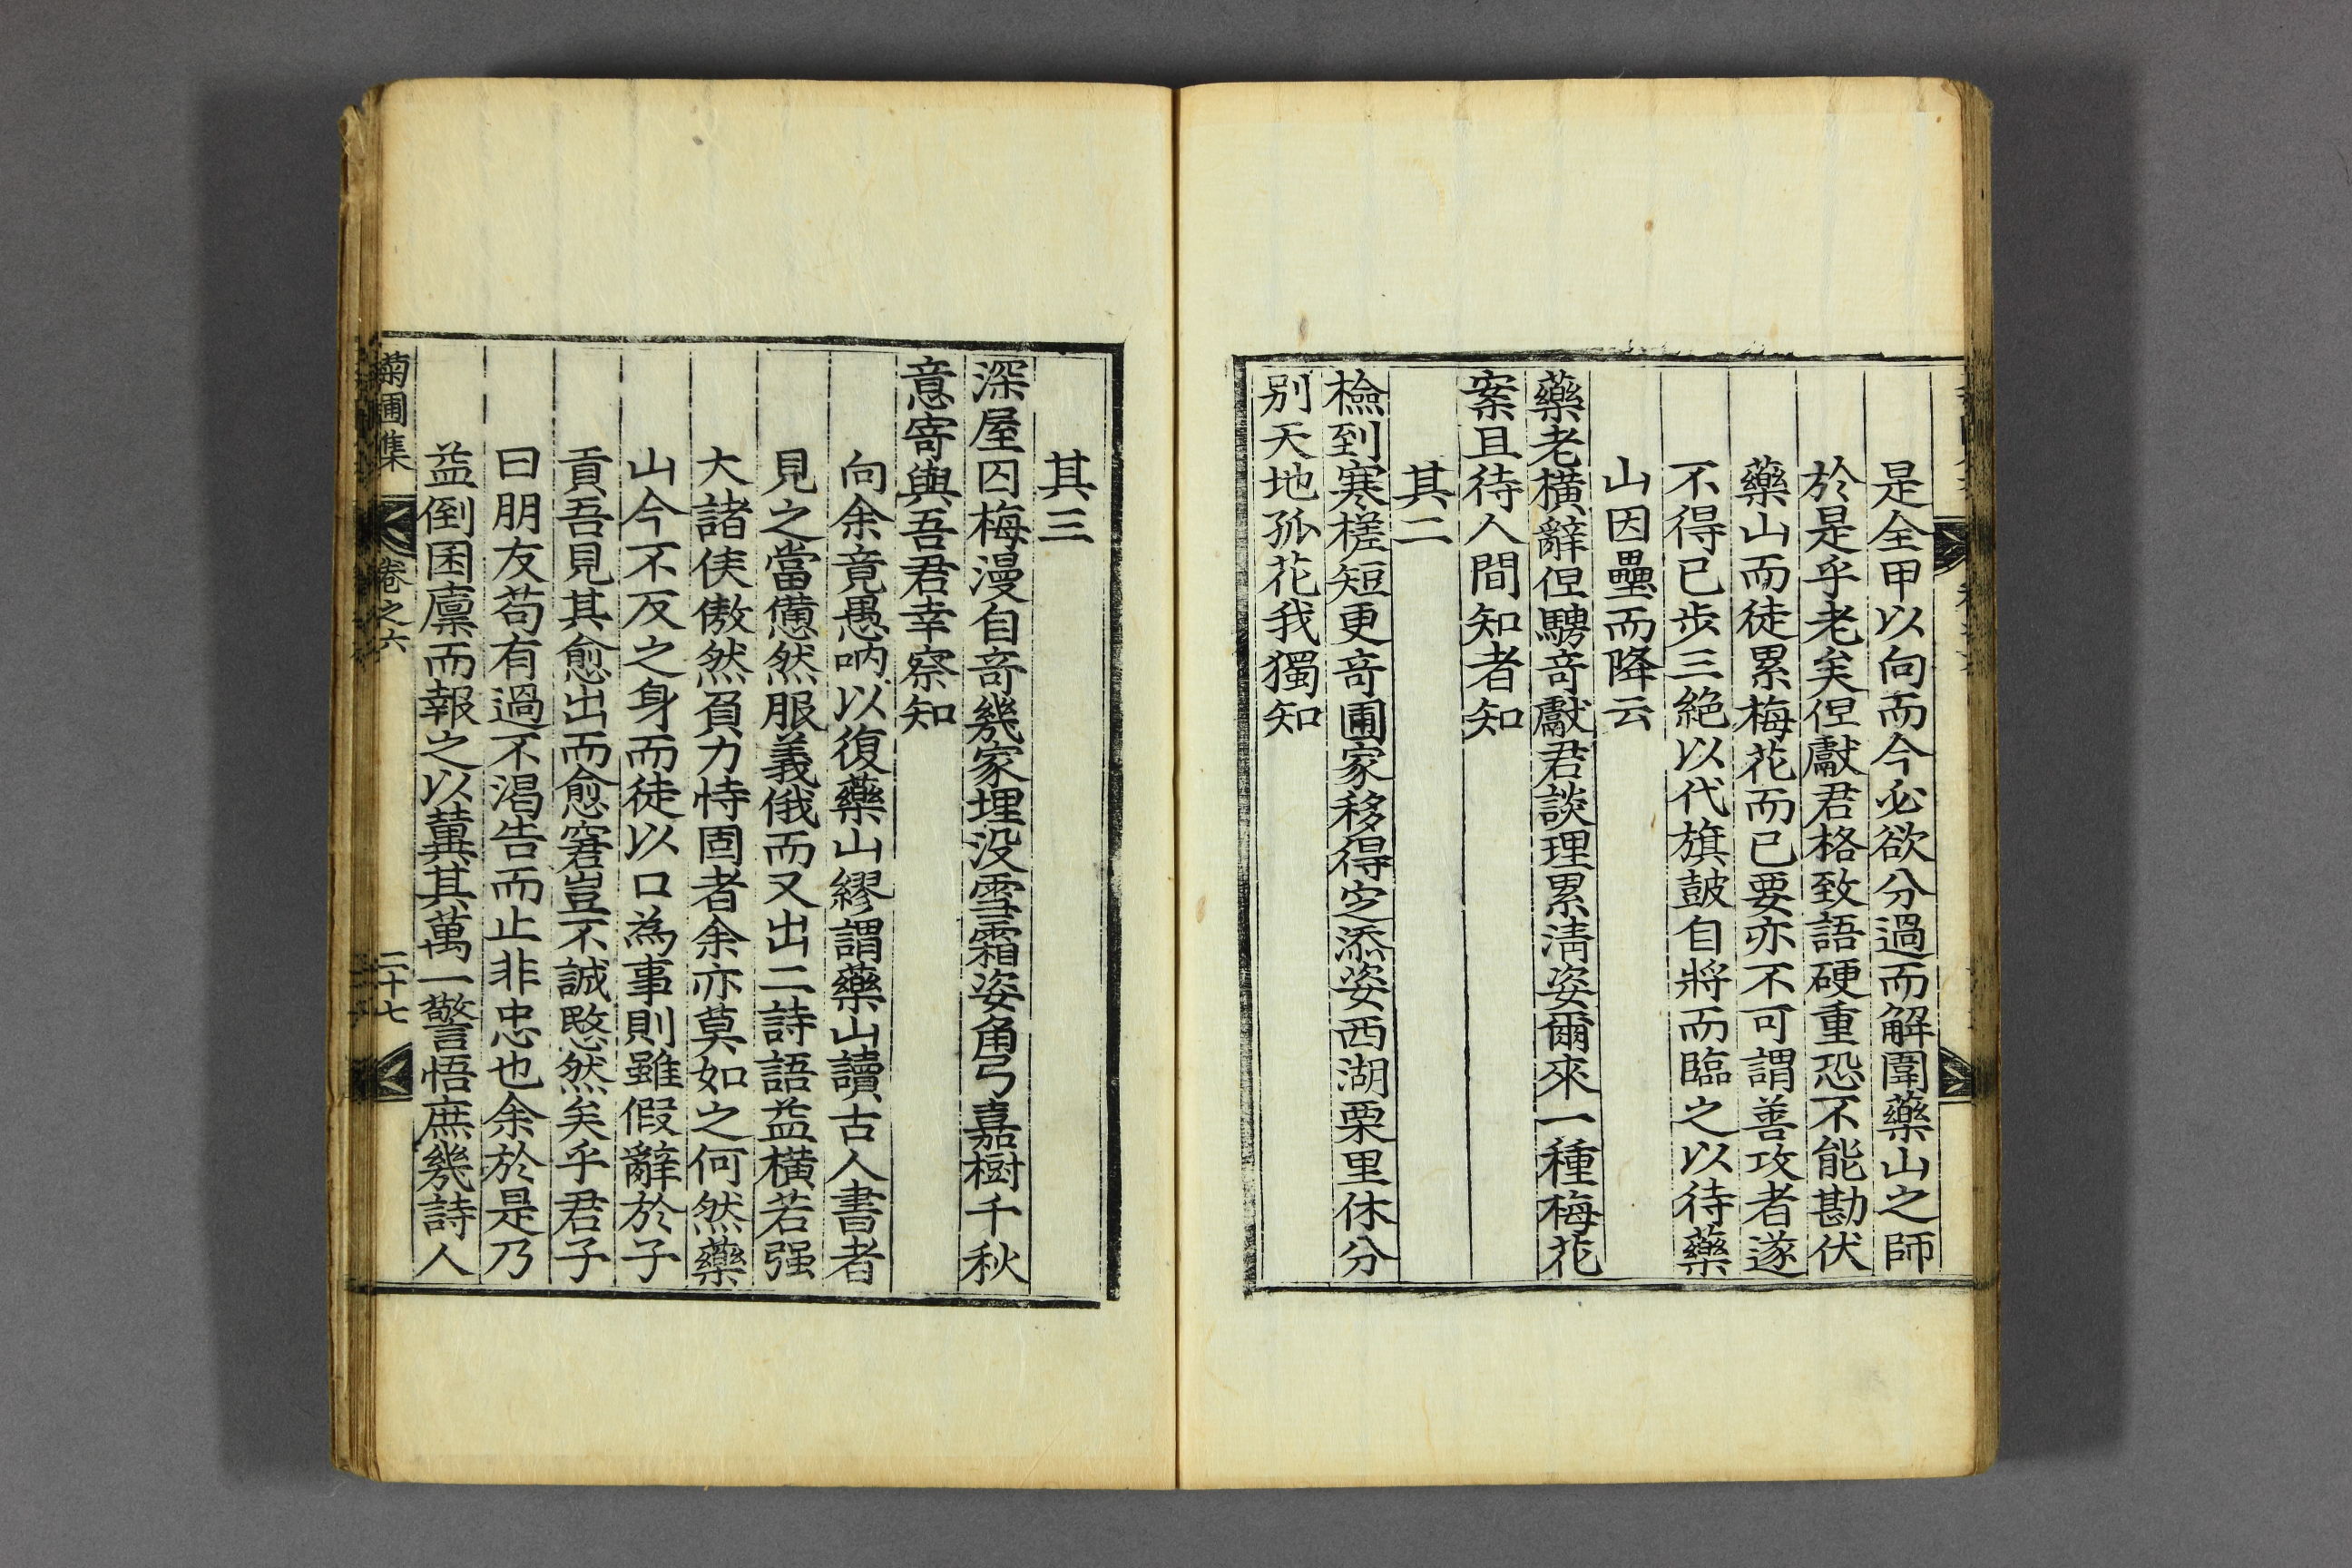 是全甲以向而今必欲分過而解圍藥山之師
於是乎老矣但獻君格致語硬重恐不能勘伏
藥山而徒累梅花而已要亦不可謂善攻者遂
不得已步三絶以代旗鼓自將而臨之以待藥
山因壘而降云
藥老橫辭但騁奇獻君談理累淸姿爾來一種梅花
案且待人間知者知
其二
檢到寒槎短更奇圃家移得定添姿西湖栗里休分
别天地孤花我獨知
其三
深屋囚梅漫自奇幾家埋没雪霜姿角弓嘉樹千秋
意寄與吾君幸察知
向余竟愚吶以復藥山繆謂藥山讀古人書者
見之當憊然服義俄而又出二詩語益橫若强
大諸侯傲然負力恃固者余亦莫如之何然藥
山今不反之身而徒以口為事則雖假辭於子
貢吾見其愈出而愈窘豈不誠愍然矣乎君子
曰朋友苟有過不渴告而止非忠也余於是乃
益倒囷廪而報之以冀其萬一警悟庶幾詩人
菊圃集
卷之六
二十七